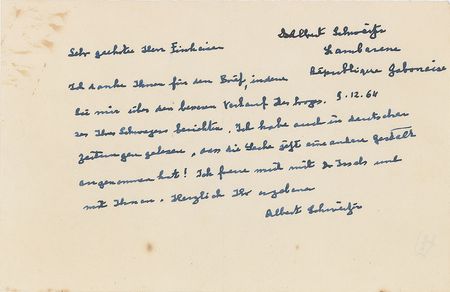 Dr Albert Schweitzer
Lambarene
République Gabonaise
9.12.64
Sehr geehrter Herr Einhaisen
Ich danke Ihnen für den Brief, indem
Sie mir über den besseren Verlauf des
Ihres Schwagers berichten. Ich habe auch in deutschen
Zeitungen gelesen, dass die Sache jetzt eine andere Gestalt
angenommen hat! Ich freue mich mit und
mit Ihnen. Herzlich Ihr ergebener
Albert Schweitzer